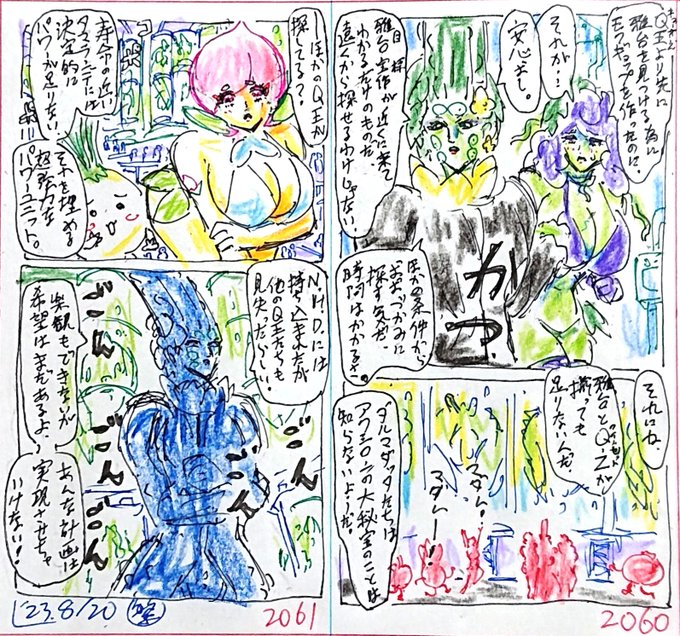 Q王より先に
雅台を見つける為に
モスギョップを作ったのに。
それが…
安心し。
雅台実体が近くに来て
わかるだけのものだ。
遠くから探せるわけじゃない
ほか条件から
おおつかみに
探す気だ。
時間はかかるさ。
かっ
それにね
雅台とQ-Zが
揃っても
足りないんだ
マダム!
マダムー!
ダルマダッタたちは
アフェロンの大秘宝のことは
知らないようだ。
2060
ほかのQ王が
探してる?
寿命の近い
決定的に
パワーが足りない
それを埋める
超強力な
パワーユニットよ。
N.H.D.には
持ち込まれたが
他のQ王たちも
見失ったらしい!
ごん
ごん
ごん
ごん
楽観もできないが
希望はまだあるよ。
あんな計画は
実現させちゃ
いけない!
'23.8/20
2061